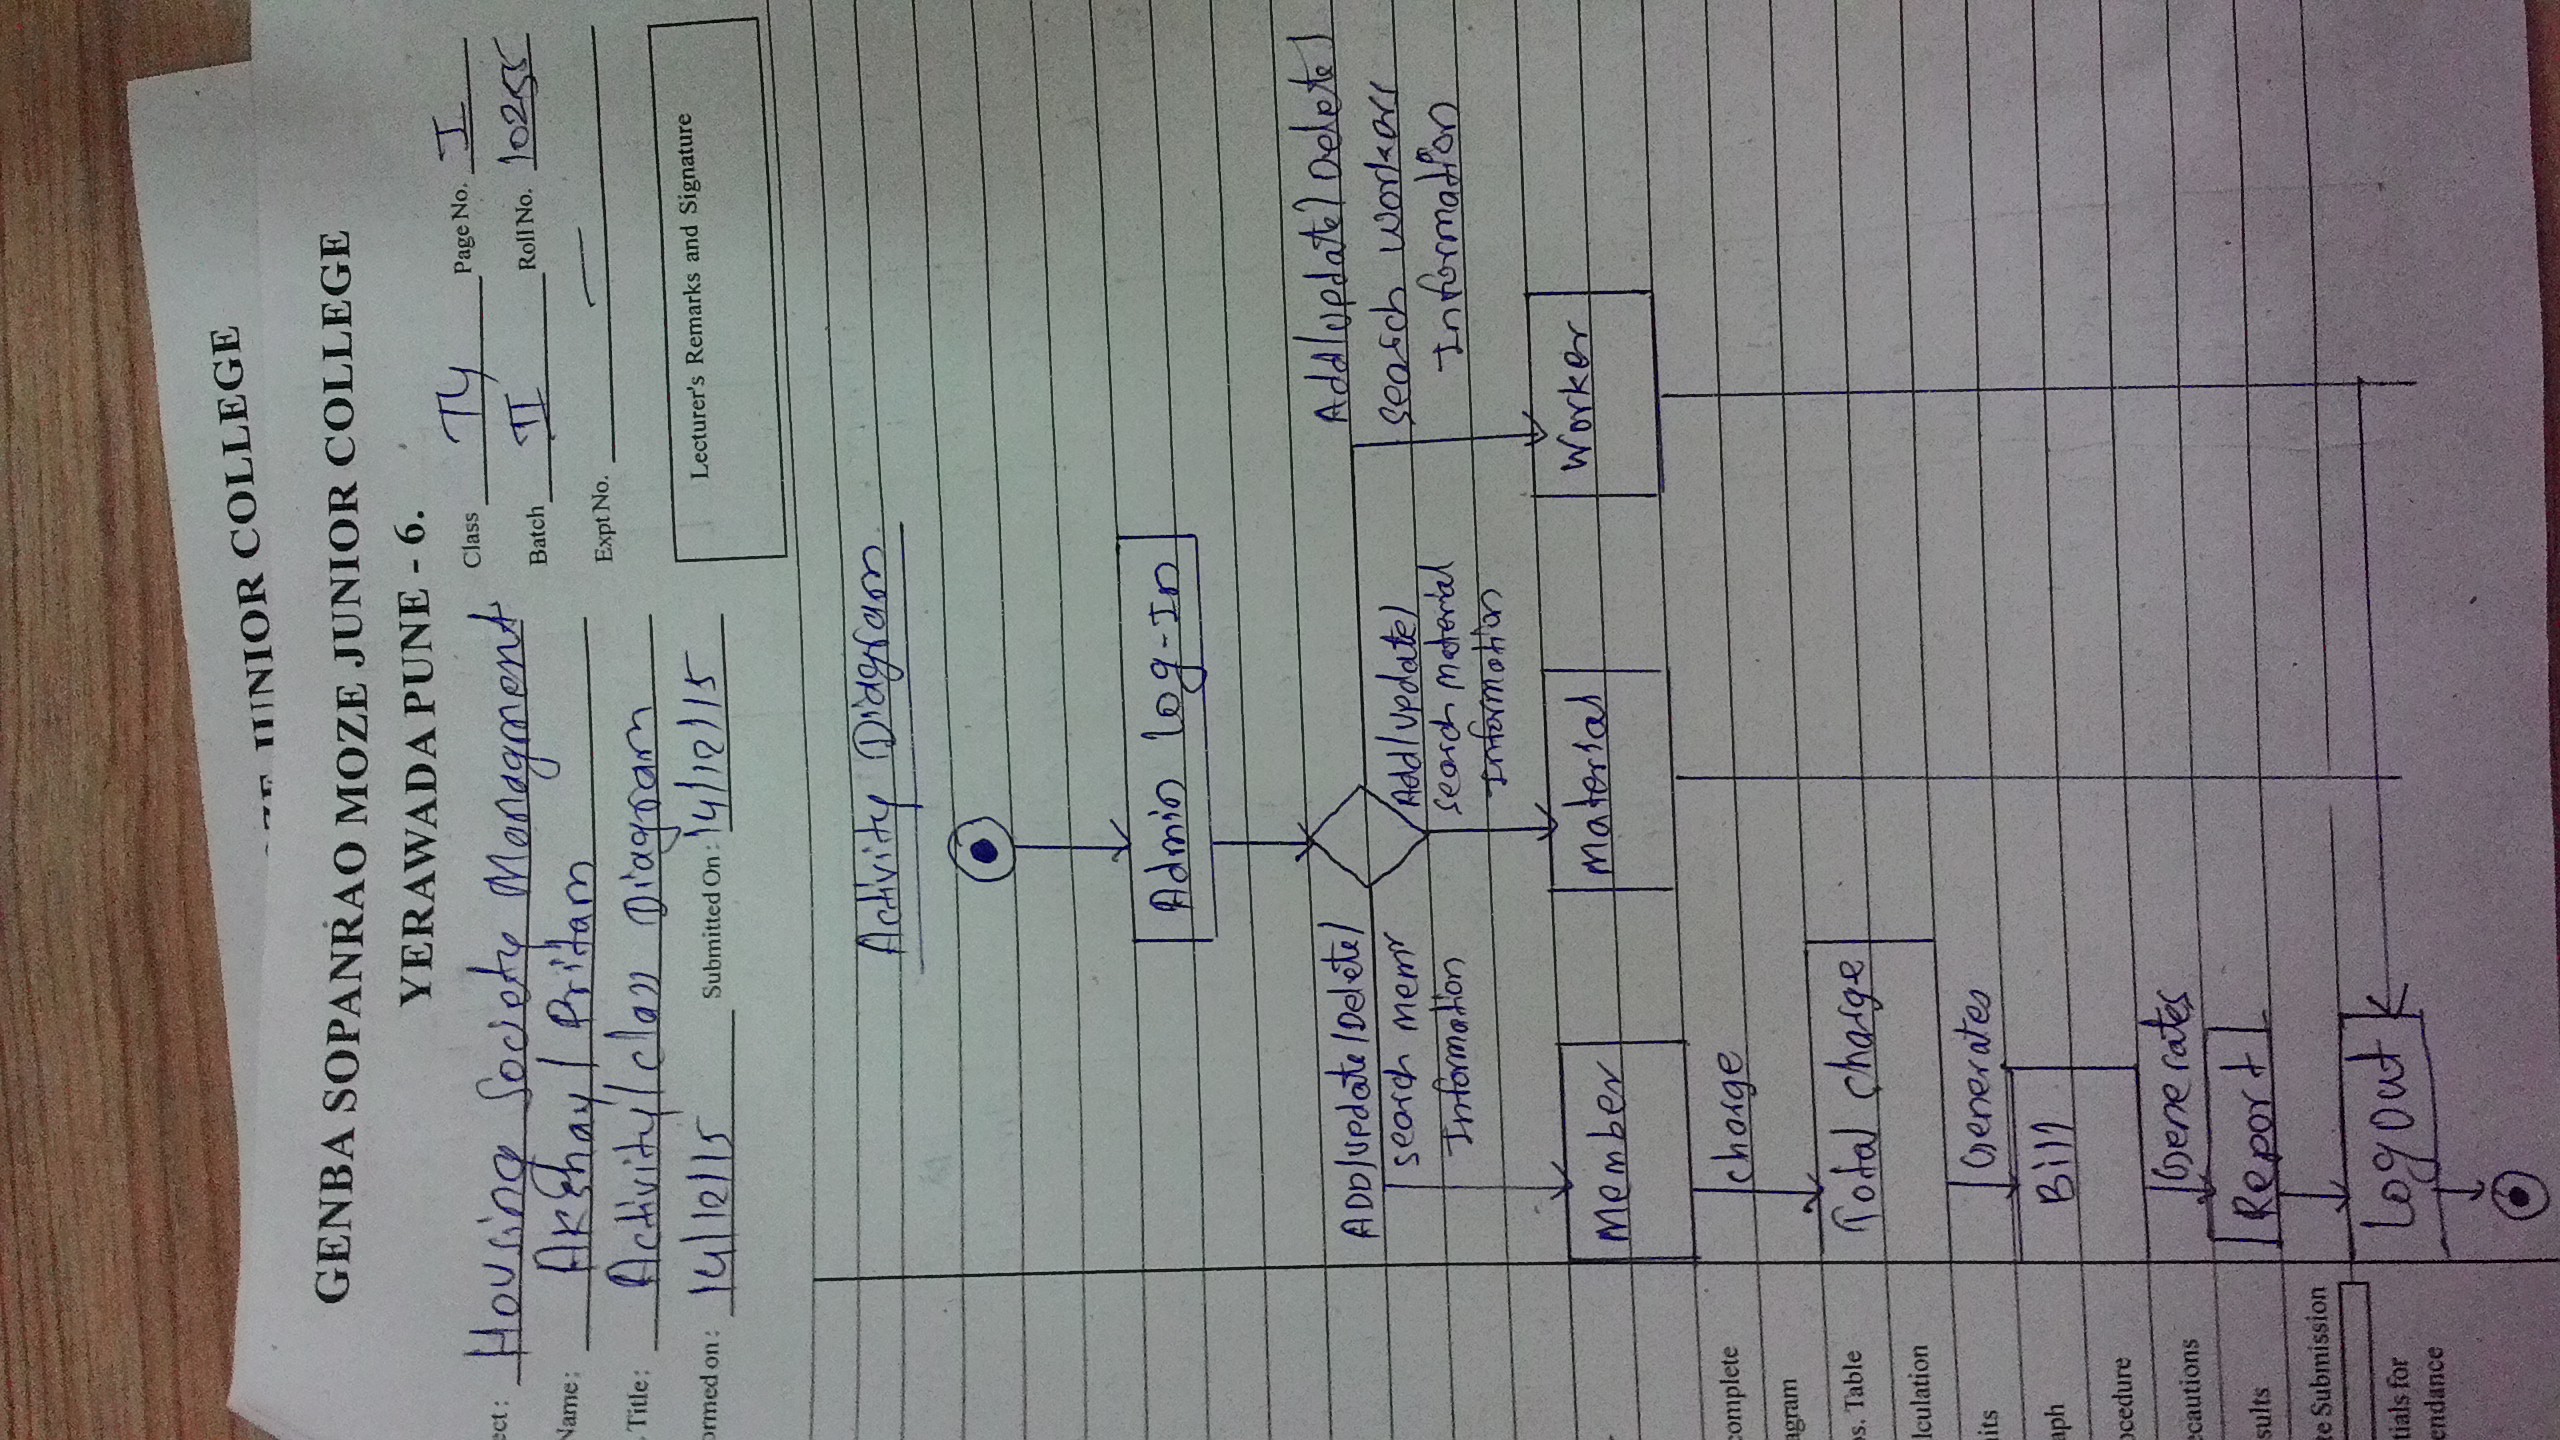 JUNIOR COLLEGE
GENBA SOPANRAO MOZE JUNIOR COLLEGE
YERAWADA PUNE - 6.
ect: Housing Society Managment
Class TY Page No. I
Name: Akshay/Pritam
Batch II Roll No. 10255
Title: Activity/class Diagram
Expt No. —
ormed on: 14/12/15 Submitted On: 14/12/15
Lecturer's Remarks and Signature
Activity Diagram
Admin log-In
ADD/update/Delete/
search memr
Information
Add/update/
search material
Information
Add/update/Delete/
search workers
Information
Member
Material
Worker
charge
Total charge
Generates
Bill
Generates
Report
Logout
complete
agram
os. Table
lculation
nits
aph
ocedure
ecautions
sults
te Submission
tials for
endance